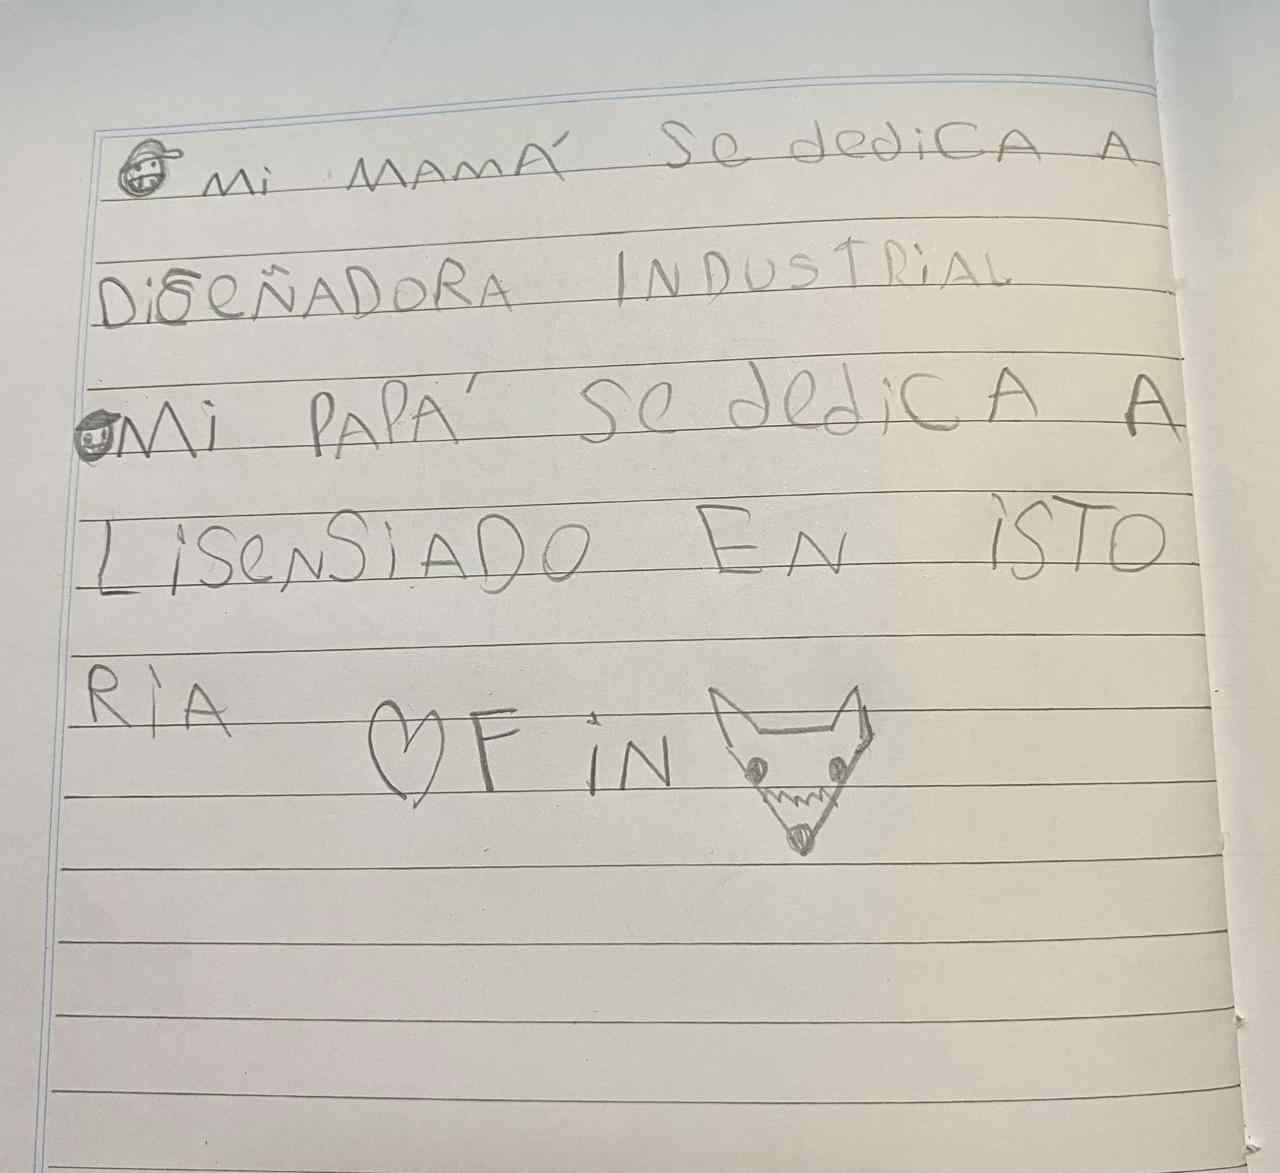 Mi MAMÁ Se dediCA A
DiSeÑADORA INDUSTRiAL
Mi PAPÁ Se dediCA A
LiSeNSiADO EN iSTO
RiA
FiN